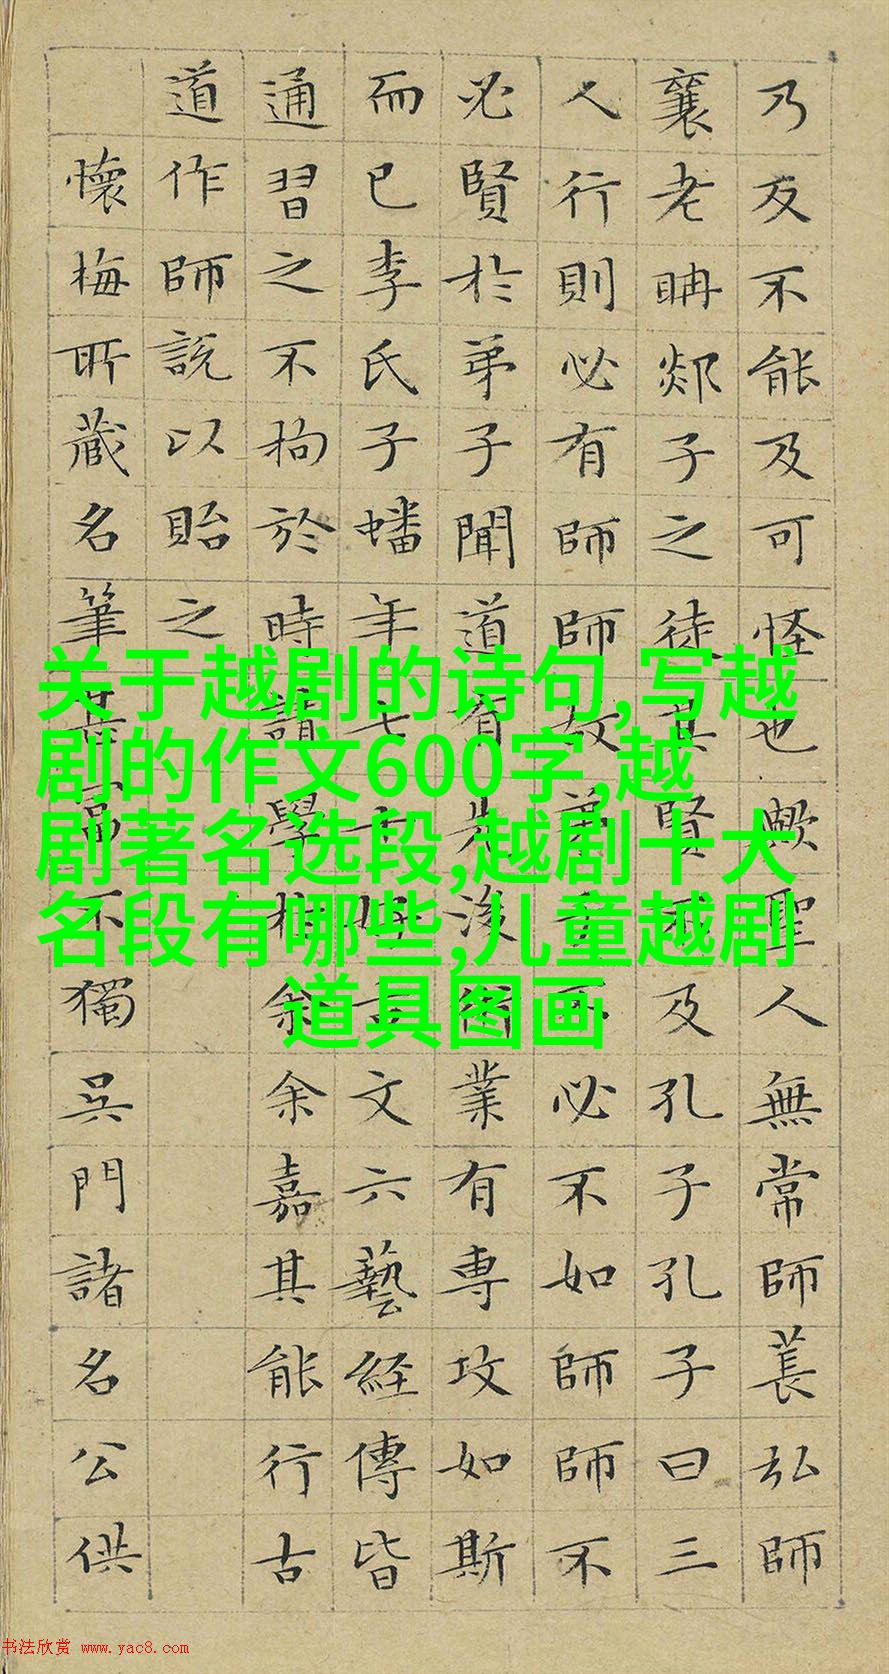 乃反不能及可怪也歟聖人無常師萇弘師
襄老聃郯子之徒其賢不及孔子孔子曰三
人行則必有師師故弟子不必不如師師不
必賢於弟子聞道有先後術業有專攻如斯
而已李氏子蟠年十七好古文六藝經傳皆
通習之不拘於時請學於余余嘉其能行古
道作師說以貽之
懷梅所藏名筆甚富不獨吳門諸名公供
关于越剧的诗句,写越
剧的作文600字,越
剧著名选段,越剧十大
名段有哪些,儿童越剧
道具图画
书法欣赏 www.yac8.com